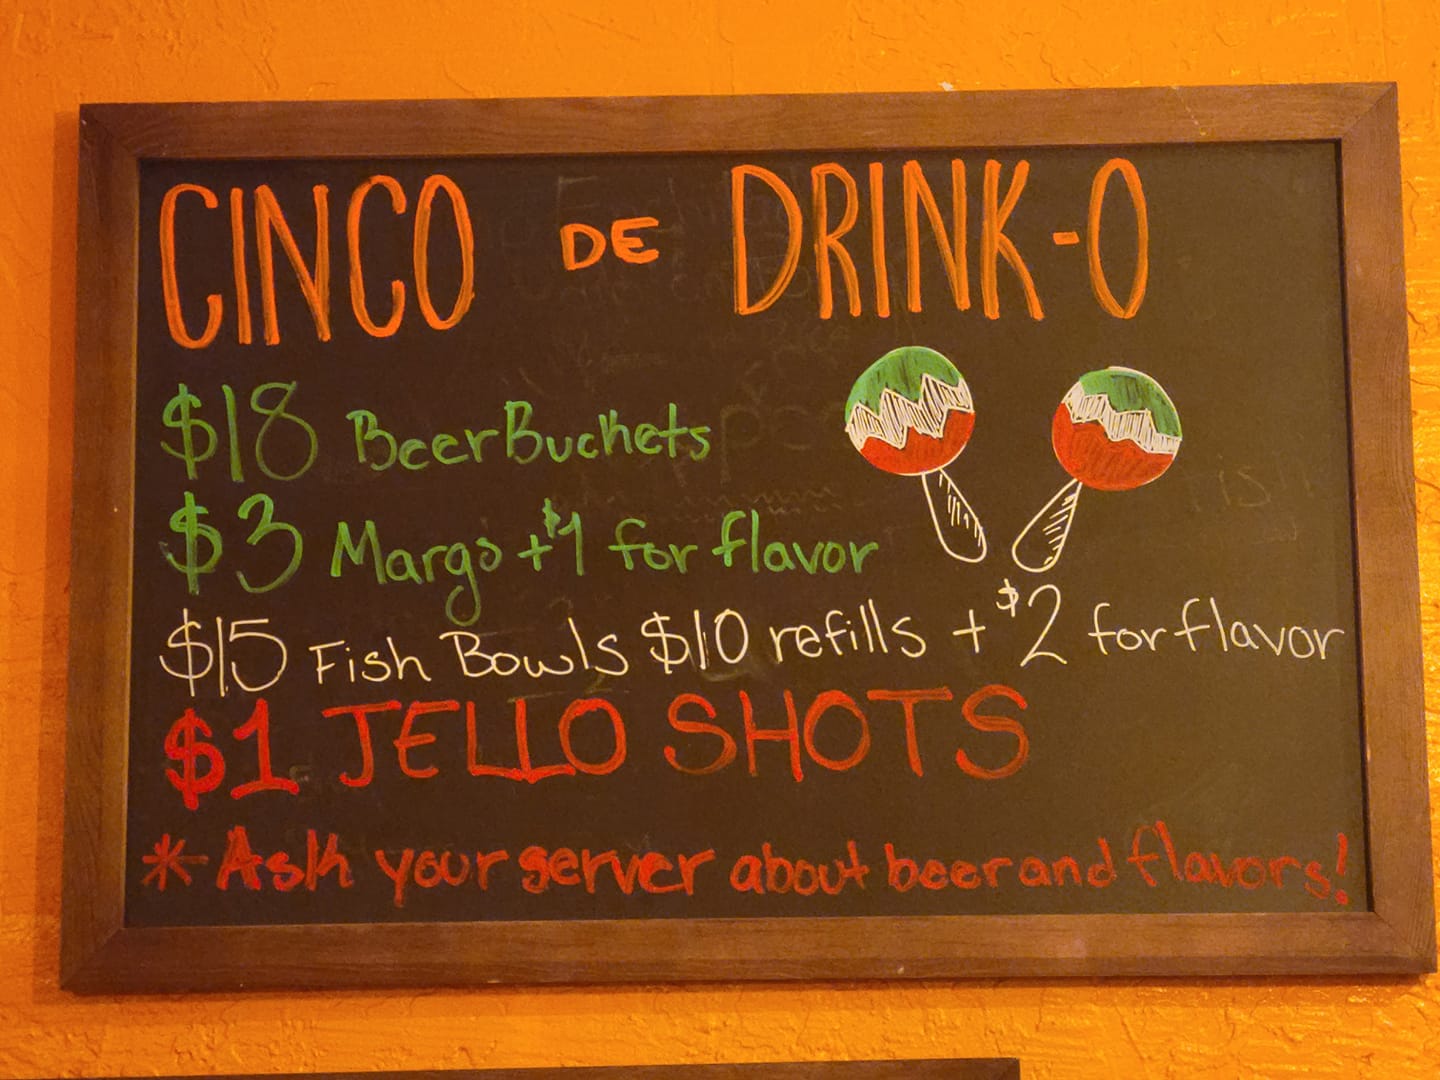 CINCO DE DRINK-O
$18 Beer Buckets
$3 Margs +$1 for flavor
$15 Fish Bowls $10 refills + $2 for flavor
$1 JELLO SHOTS
* Ask your server about beer and flavors!